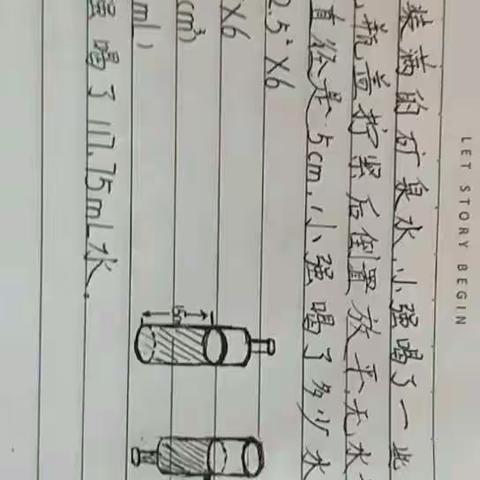 LET STORY BEGIN
装满的矿泉水,小强喝了一些
瓶盖拧紧后倒置放平,无水
直径是5cm,小强喝了多少水
2.5²×6
×6
cm³)
ml)
强喝了117.75mL水.